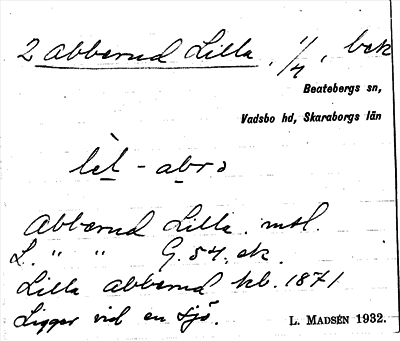 2 Abberud Lilla, 1/4, bek
Beatebergs sn,
Vadsbo hd, Skaraborgs län
lèl - abrə
Abberud Lilla mtl.
L. " " G. 54. ek.
Lilla Abberud kb. 1871
Ligger vid en sjö.
L. MADSÉN 1932.